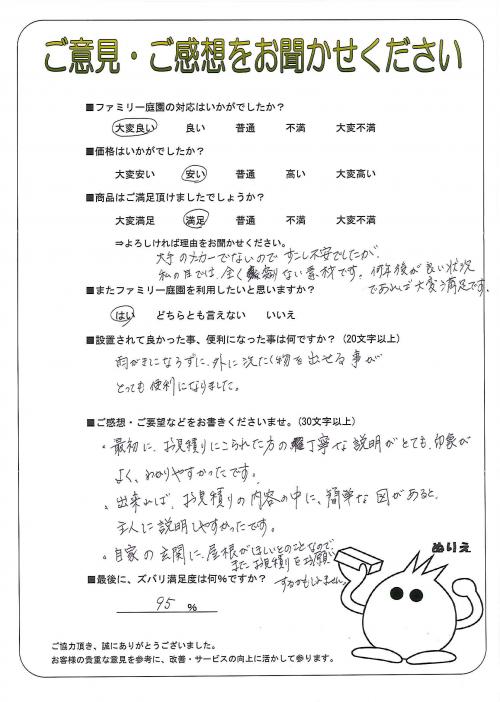 ご意見・ご感想をお聞かせください
■ファミリー庭園の対応はいかがでしたか？
大変良い 良い 普通 不満 大変不満
■価格はいかがでしたか？
大変安い 安い 普通 高い 大変高い
■商品はご満足頂けましたでしょうか？
大変満足 満足 普通 不満 大変不満
⇒よろしければ理由をお聞かせください。
大手のメーカーでないので すこし不安でしたが、
私の目では、全く ない素材です。何年後が良い状況
であれば大変満足です。
■またファミリー庭園を利用したいと思いますか？
はい どちらとも言えない いいえ
■設置されて良かった事、便利になった事は何ですか？（20文字以上）
雨がきにならずに、外に洗たく物を出せる事が
とっても便利になりました。
■ご感想・ご要望などをお書きくださいませ。（30文字以上）
・最初に、お見積りにこられた方の丁寧な説明がとても、印象が
よく、わかりやすかったです。
・出来れば、お見積りの内容の中に、簡単な図があると、
主人に説明しやすかったです。
・自家の玄関に、屋根がほしいとのことなので
また お見積りをお願い
するかもしれません。
ぬりえ
■最後に、ズバリ満足度は何％ですか？
95 ％
ご協力頂き、誠にありがとうございました。
お客様の貴重な意見を参考に、改善・サービスの向上に活かして参ります。